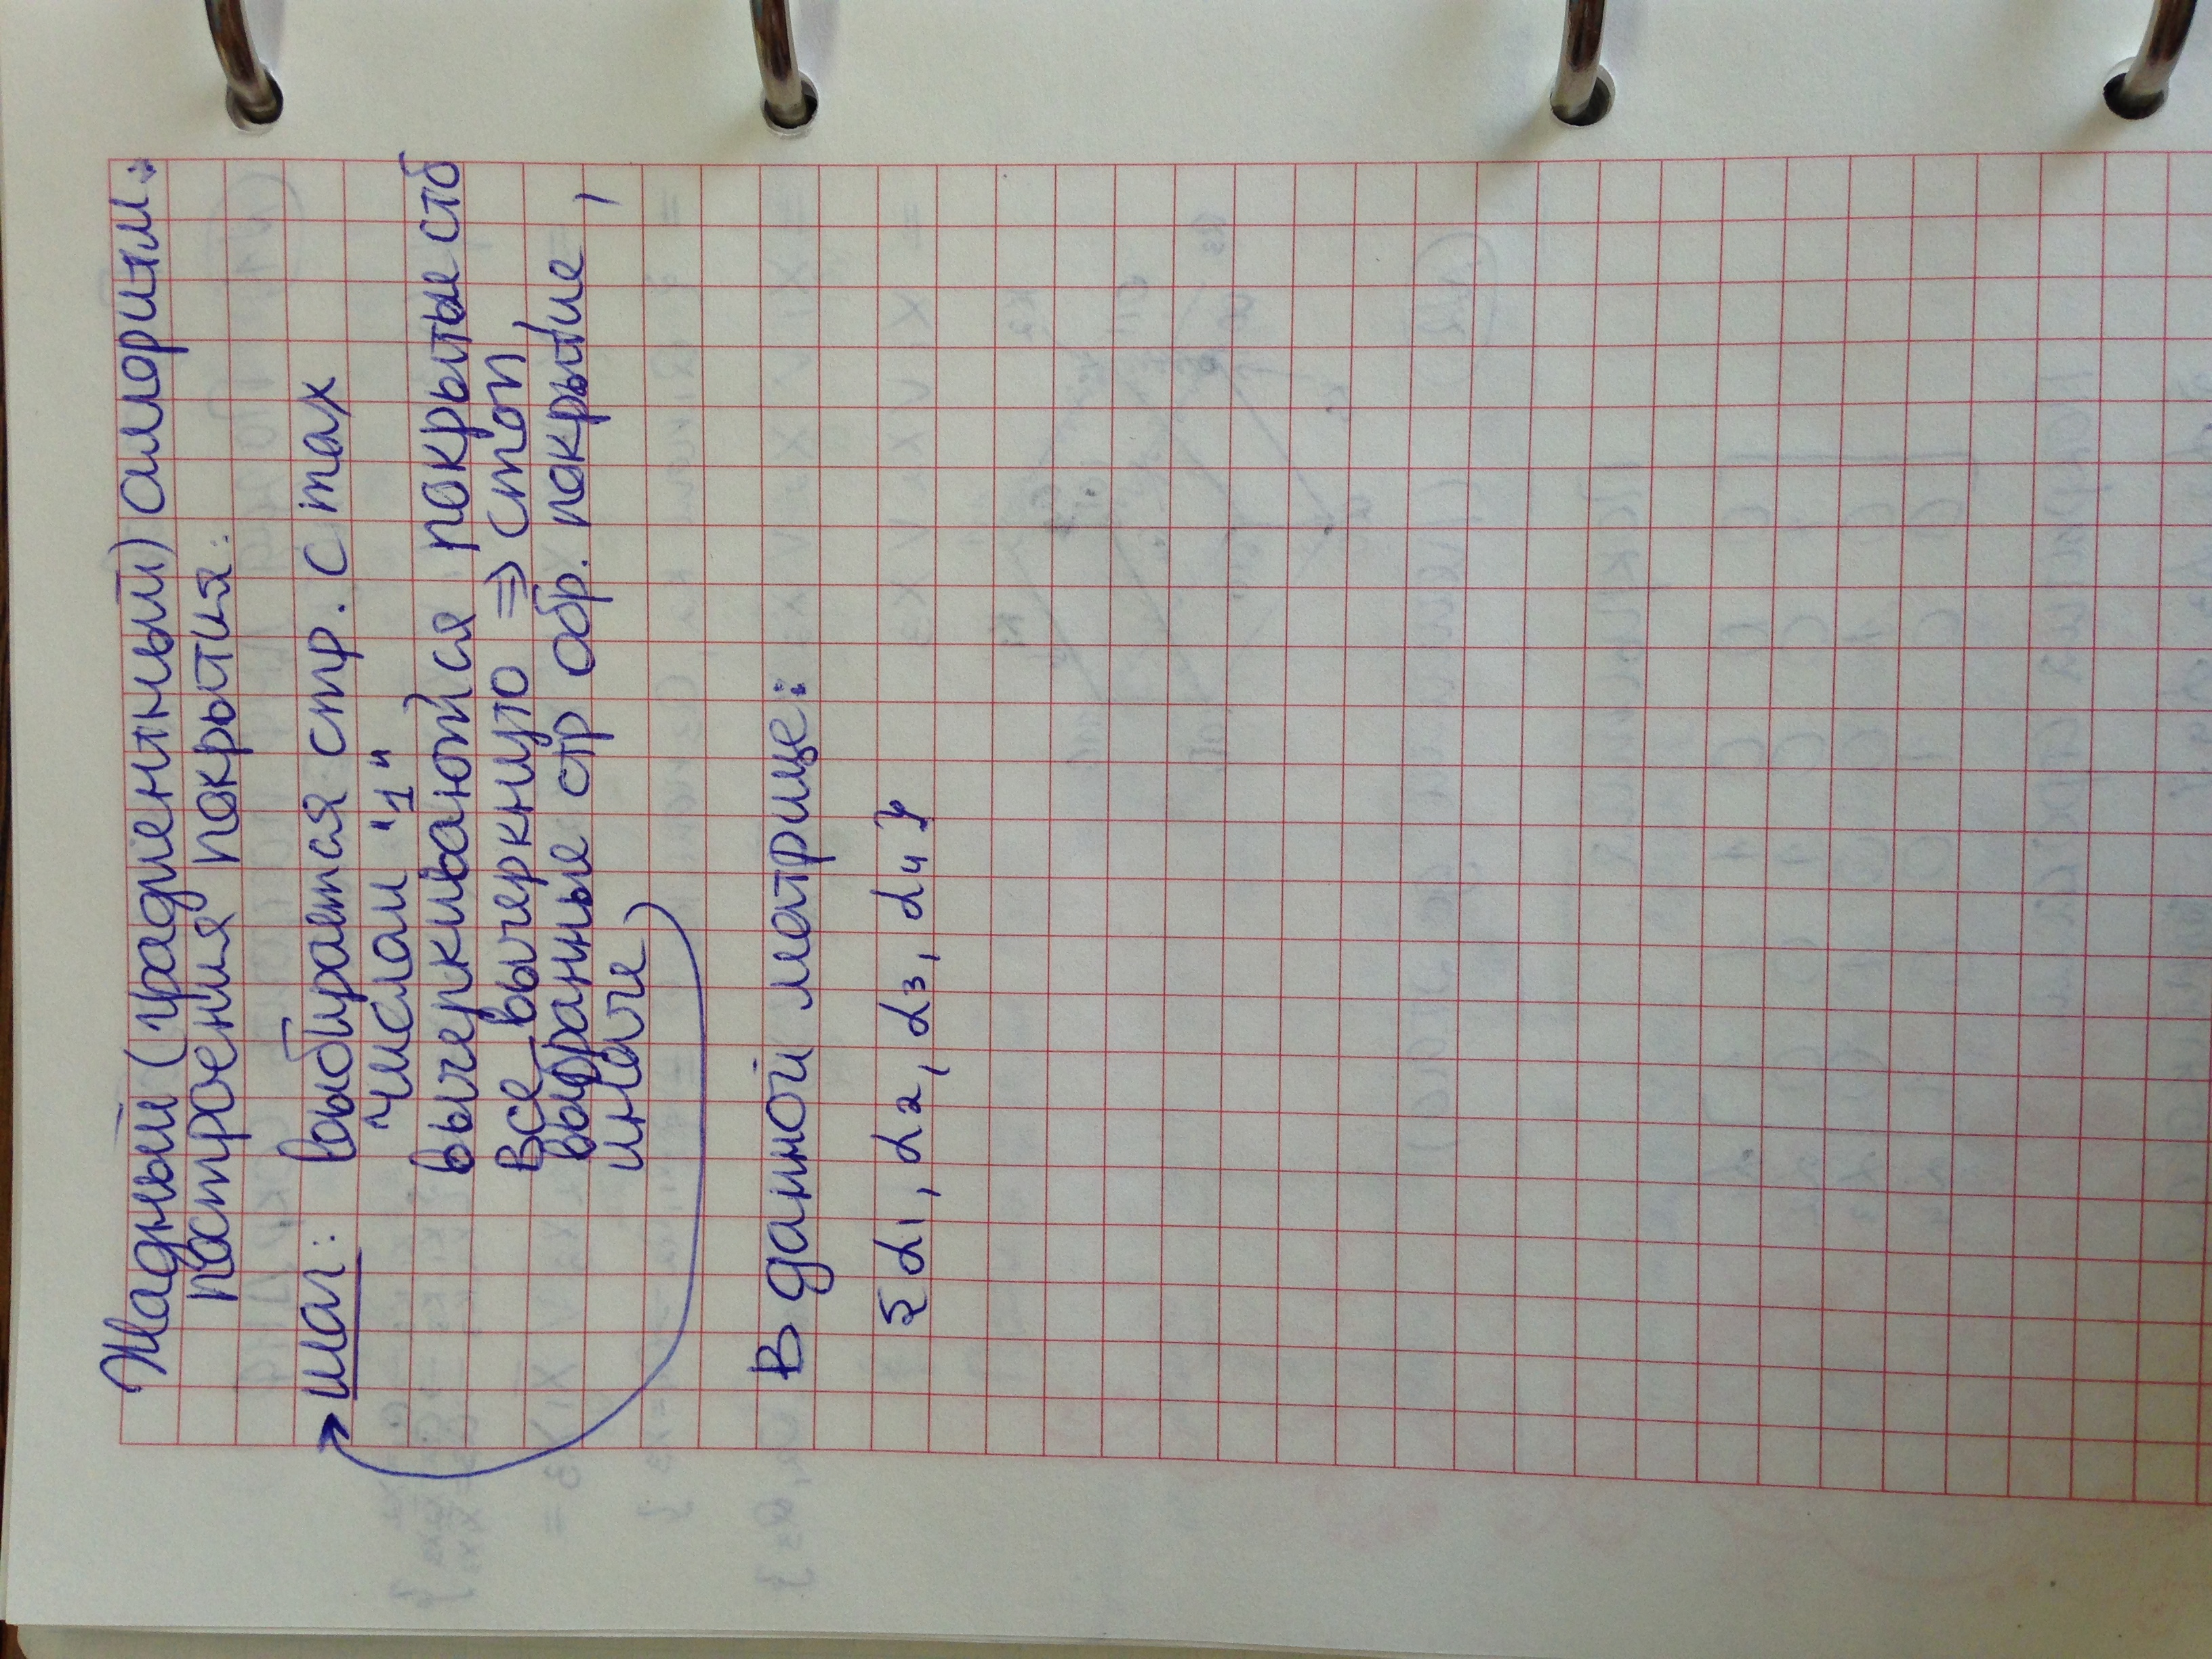 Жадный (градиентный) алгоритм
построения покрытия:
шаг: выбирается стр. с max
числом "1"
вычеркиваются покрытые стб
Все вычеркнуто => стоп
выбранные стр обр. покрытие,
иначе
В данной матрице:
{α1, α2, α3, α4}